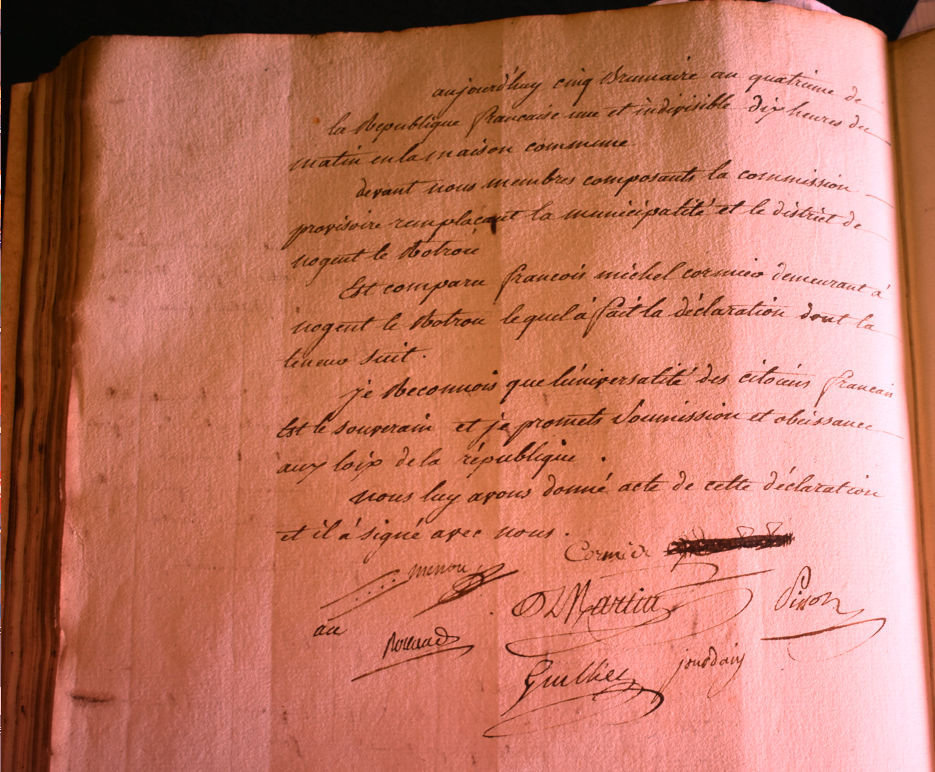 aujourd'huy cinq Brumaire an quatrieme de
la Republique francaise une et indivisible dix heures du
matin en la maison commune
devant nous membres composants la commission
provisoire remplaçant la municipalité et le district de
nogent le Rotrou
Est comparu francois michel cormier demeurant à
nogent le Rotrou lequel à fait la déclaration dont la
teneur suit.
je Reconnois que l'universalité des citoiens francais
Est le souverain et je promets Soumission et obeissance
aux loix de la république.
nous luy avons donné acte de cette déclaration
et il à signé avec nous.
Cormier
menou
Martin
Pinon
au
jourdain
Guillier